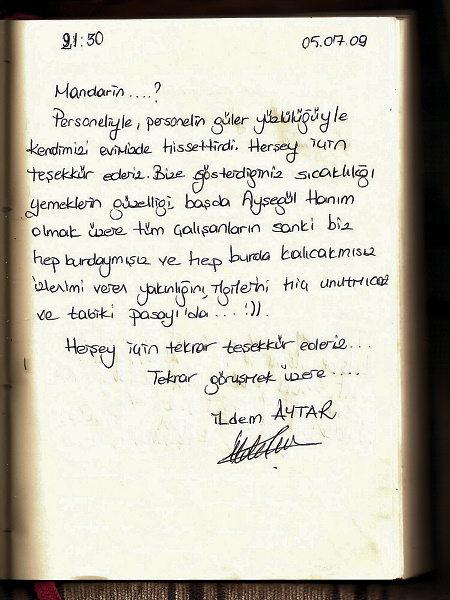 21:30 05.07.09
Mandarin....?
Personeliyle, personelin güler yüzlülüğüyle
kendimizi evimizde hissettirdi. Herşey için
teşekkür ederiz. Bize gösterdiğiniz sıcaklılığı
yemeklerin güzelliği, başda Ayşegül Hanım
olmak üzere tüm çalışanların sanki biz
hep burdaymışız ve hep burda kalıcakmışız
izlenimi veren yakınlığını, ilgilerini hiç unutmıcaz
ve tabiki pasayı'da...!)).
Herşey için tekrar teşekkür ederiz...
Tekrar görüşmek üzere....
İLdem AYTAR